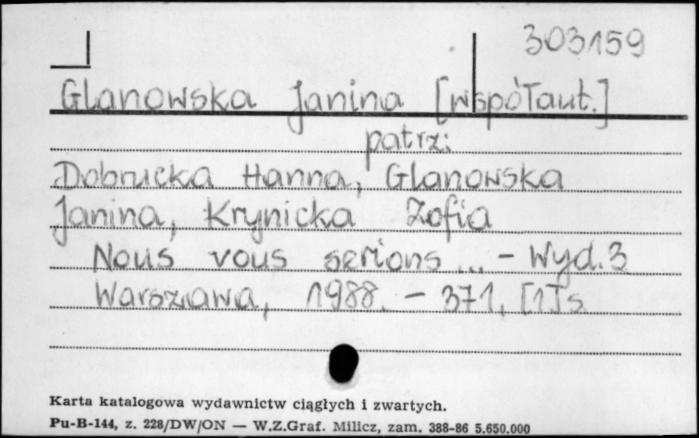 303159
Glanowska Janina [współaut.]
patrz:
Dobrucka Hanna, Glanowska
Janina, Krynicka Zofia
Nous vous serions ... - Wyd. 3
Warszawa, 1988. - 371, [1] s
Karta katalogowa wydawnictw ciągłych i zwartych.
Pu-B-144, z. 228/DW/ON — W.Z.Graf. Milicz, zam. 388-86 5.650.000